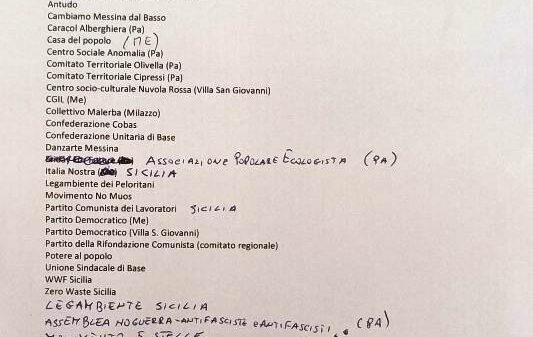 Antudo
Cambiamo Messina dal Basso
Caracol Alberghiera (Pa)
Casa del popolo (ME)
Centro Sociale Anomalia (Pa)
Comitato Territoriale Olivella (Pa)
Comitato Territoriale Cipressi (Pa)
Centro socio-culturale Nuvola Rossa (Villa San Giovanni)
CGIL (Me)
Collettivo Malerba (Milazzo)
Confederazione Cobas
Confederazione Unitaria di Base
Danzarte Messina
ASSOCIAZIONE POPOLARE ECOLOGISTA (PA)
Italia Nostra SICILIA
Legambiente dei Peloritani
Movimento No Muos
Partito Comunista dei Lavoratori SICILIA
Partito Democratico (Me)
Partito Democratico (Villa S. Giovanni)
Partito della Rifondazione Comunista (comitato regionale)
Potere al popolo
Unione Sindacale di Base
WWF Sicilia
Zero Waste Sicilia
LEGAMBIENTE SICILIA
ASSEMBLEA NOGUERRA-ANTIFASCISTE e ANTIFASCISTI (PA)
MOVIMENTO 5 STELLE